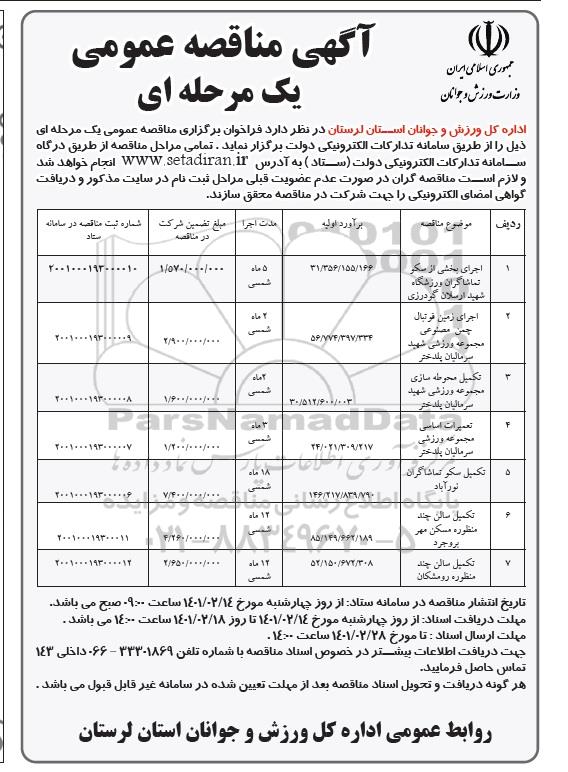 جمهوری اسلامی ایران
وزارت ورزش و جوانان
آگهی مناقصه عمومی
یک مرحله ای
اداره کل ورزش و جوانان اســتان لرستان در نظر دارد فراخوان برگزاری مناقصه عمومی یک مرحله ای
ذیل را از طریق سامانه تدارکات الکترونیکی دولت برگزار نماید . تمامی مراحل مناقصه از طریق درگاه
ســامانه تدارکات الکترونیکی دولت (ســتاد ) به آدرس www.setadiran.ir انجام خواهد شد
و لازم اســت مناقصه گران در صورت عدم عضویت قبلی مراحل ثبت نام در سایت مذکور و دریافت
گواهی امضای الکترونیکی را جهت شرکت در مناقصه محقق سازند.
ردیف موضوع مناقصه برآورد اولیه مدت اجرا مبلغ تضمین شرکت در مناقصه شماره ثبت مناقصه در سامانه ستاد
۱ اجرای بخشی از سکو تماشاگران ورزشگاه شهید ارسلان گودرزی ۳۱/۳۵۶/۱۵۵/۱۶۶ ۵ ماه شمسی ۱/۵۷۰/۰۰۰/۰۰۰ ۲۰۰۱۰۰۰۱۹۳۰۰۰۰۱۰
۲ اجرای زمین فوتبال چمن مصنوعی مجموعه ورزشی شهید سرمالیان پلدختر ۵۶/۷۷۴/۳۹۷/۳۳۴ ۲ ماه شمسی ۲/۹۰۰/۰۰۰/۰۰۰ ۲۰۰۱۰۰۰۱۹۳۰۰۰۰۰۹
۳ تکمیل محوطه سازی مجموعه ورزشی شهید سرمالیان پلدختر ۳۰/۵۱۲/۶۰۰/۰۰۳ ۲ماه شمسی ۱/۶۰۰/۰۰۰/۰۰۰ ۲۰۰۱۰۰۰۱۹۳۰۰۰۰۰۸
۴ تعمیرات اساسی مجموعه ورزشی سرمالیان پلدختر ۲۴/۰۲۱/۳۰۹/۲۱۷ ۳ ماه شمسی ۱/۲۰۰/۰۰۰/۰۰۰ ۲۰۰۱۰۰۰۱۹۳۰۰۰۰۰۷
۵ تکمیل سکو تماشاگران نورآباد ۱۴۶/۲۱۷/۸۳۹/۷۹۰ ۱۸ ماه شمسی ۷/۴۰۰/۰۰۰/۰۰۰ ۲۰۰۱۰۰۰۱۹۳۰۰۰۰۰۶
۶ تکمیل سالن چند منظوره مسکن مهر بروجرد ۸۵/۱۴۹/۶۶۲/۱۸۹ ۱۲ ماه شمسی ۴/۲۶۰/۰۰۰/۰۰۰ ۲۰۰۱۰۰۰۱۹۳۰۰۰۰۱۱
۷ تکمیل سالن چند منظوره رومشکان ۵۲/۱۵۰/۶۷۲/۳۰۸ ۱۲ ماه شمسی ۲/۶۵۰/۰۰۰/۰۰۰ ۲۰۰۱۰۰۰۱۹۳۰۰۰۰۱۲
ParsNamadData
پایگاه اطلاع رسانی مناقصه و مزایده
۰۲۱-۸۸۳۴۹۶۷۰-۵
تاریخ انتشار مناقصه در سامانه ستاد: از روز چهارشنبه مورخ ۱۴۰۱/۰۲/۱۴ ساعت ۰۹:۰۰ صبح می باشد.
مهلت دریافت اسناد: از روز چهارشنبه مورخ ۱۴۰۱/۰۲/۱۴ تا روز ۱۴۰۱/۰۲/۱۸ ساعت ۱۴:۰۰ می باشد .
مهلت ارسال اسناد : تا مورخ ۱۴۰۱/۰۲/۲۸ ساعت ۱۴:۰۰ .
جهت دریافت اطلاعات بیشــتر در خصوص اسناد مناقصه با شماره تلفن ۳۳۳۰۱۸۶۹ – ۰۶۶ داخلی ۱۴۳
تماس حاصل فرمایید.
هر گونه دریافت و تحویل اسناد مناقصه بعد از مهلت تعیین شده در سامانه غیر قابل قبول می باشد .
روابط عمومی اداره کل ورزش و جوانان استان لرستان